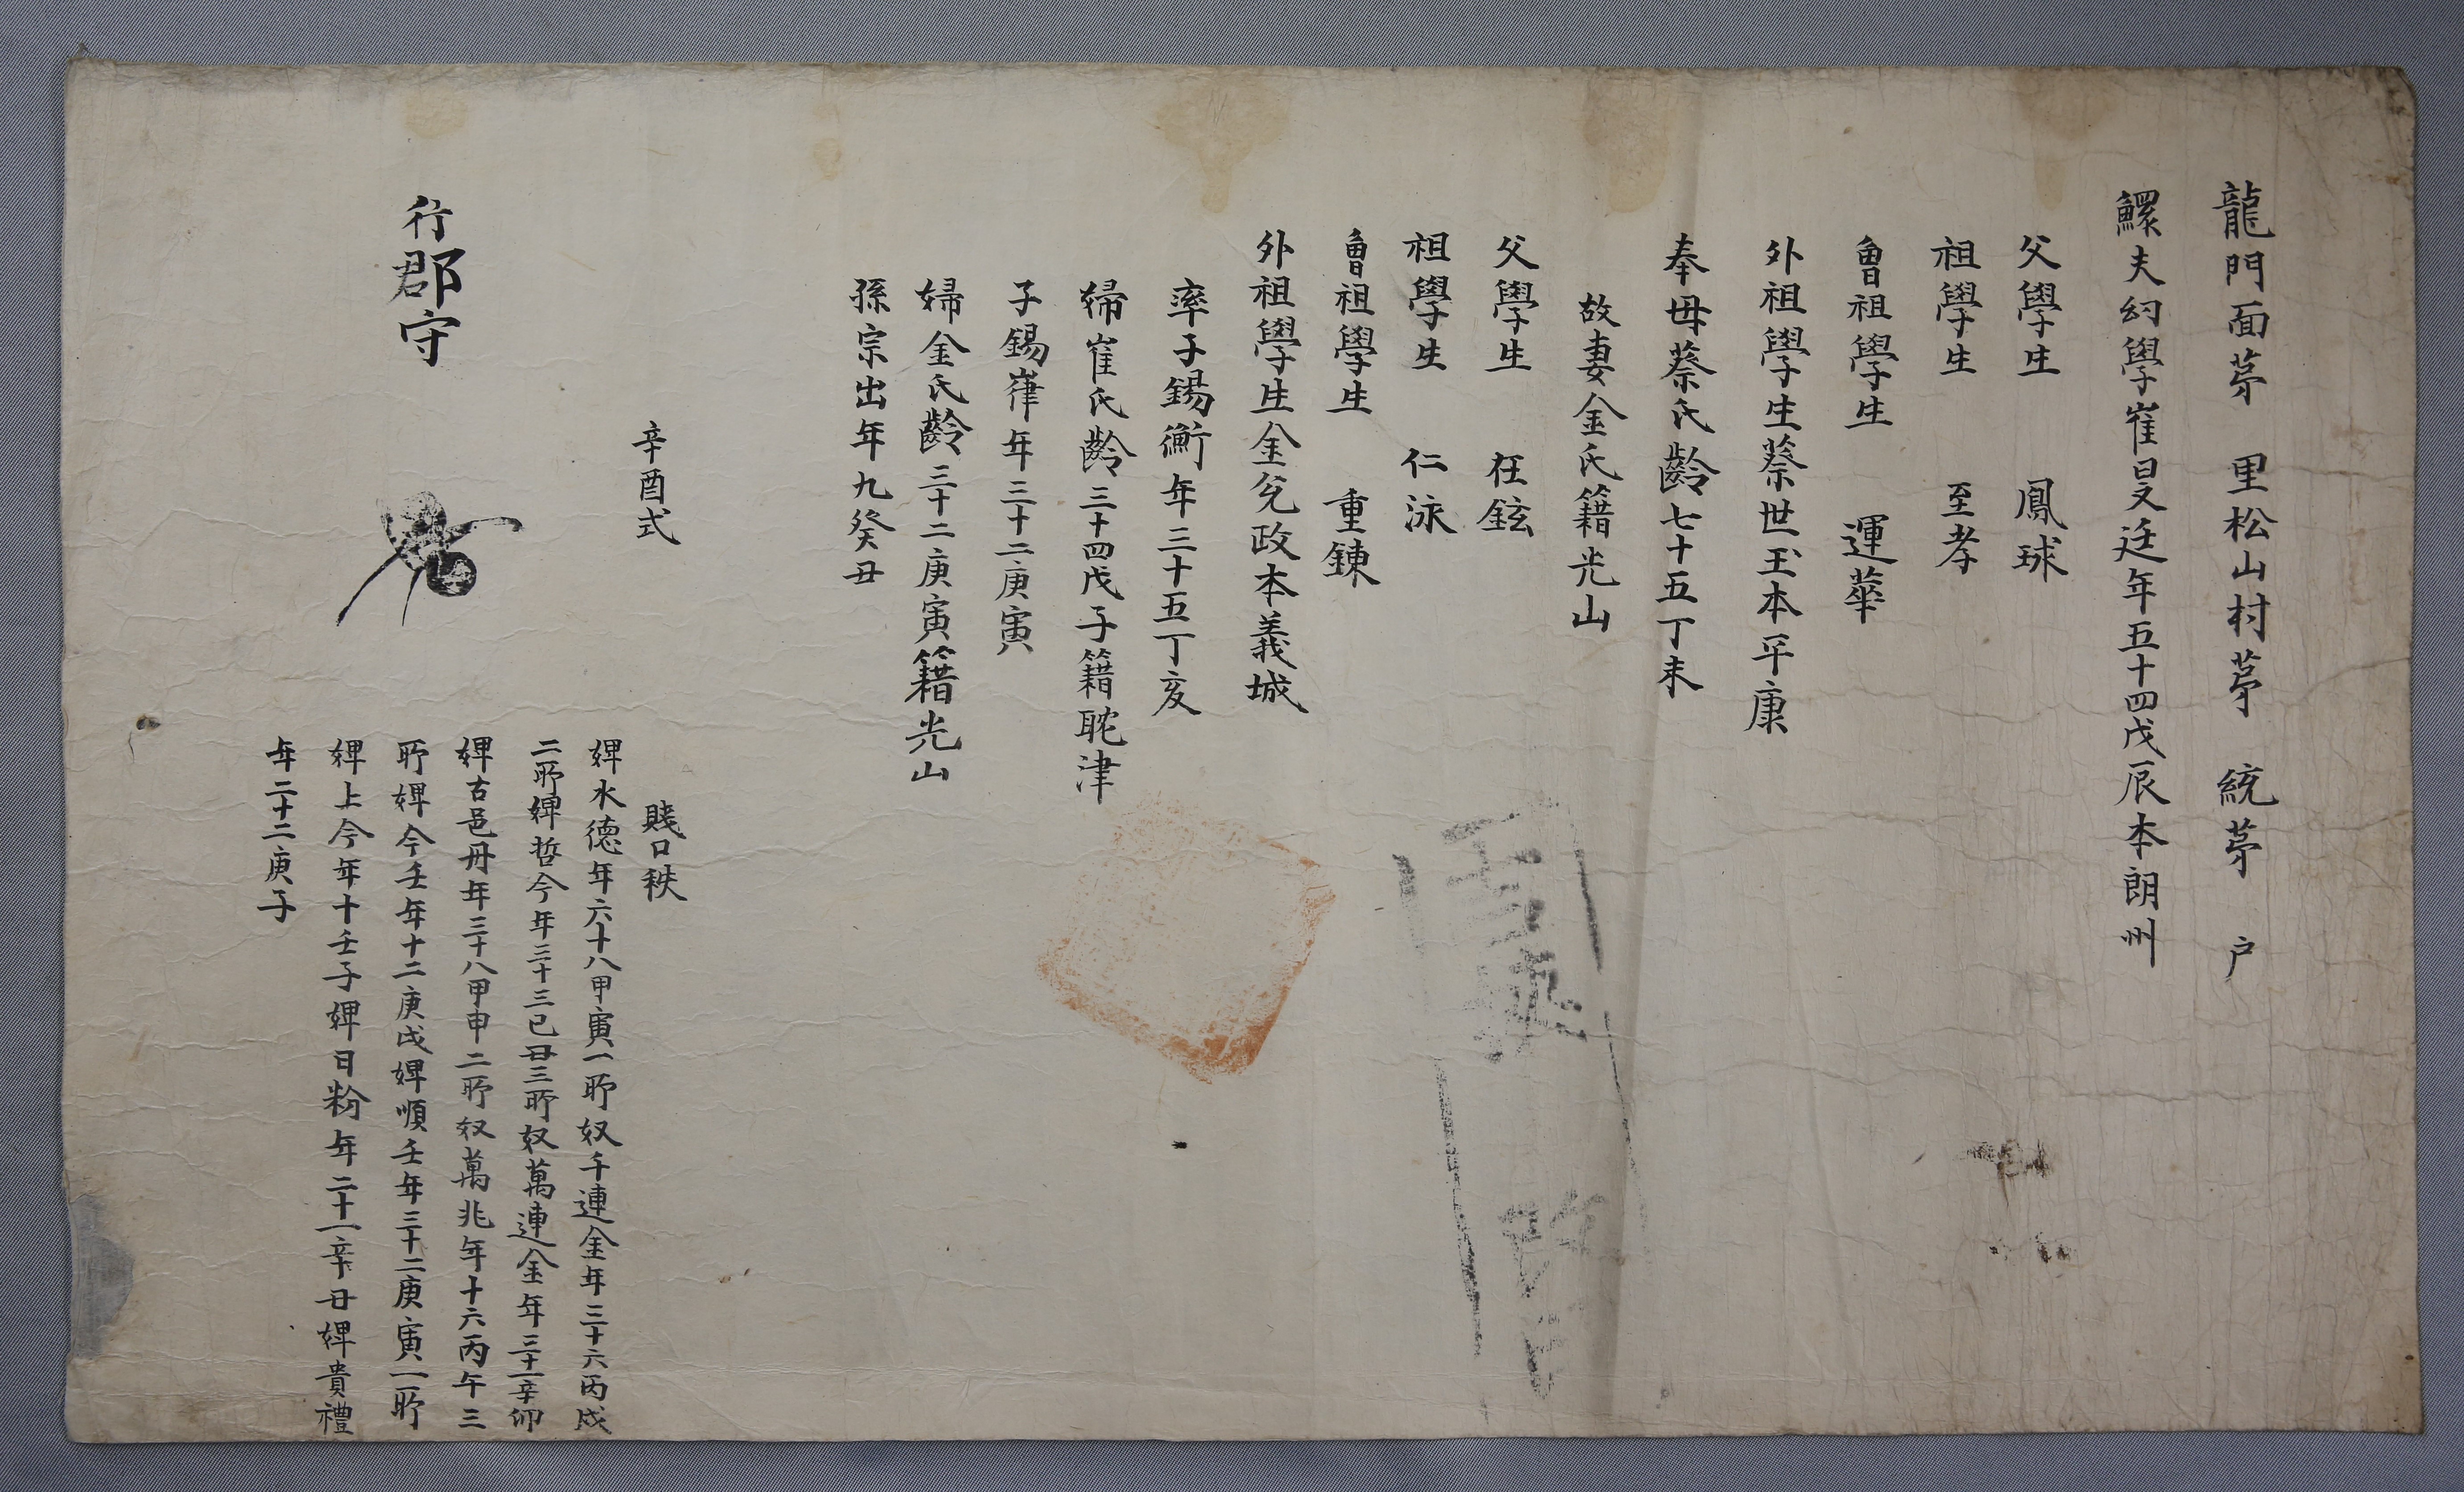 龍門面茅 里松山村茅 統茅 户
鰥夫幼學崔旻廷年五十四戊辰本朗州
父學生 鳳球
祖學生 至孝
曾祖學生 運華
外祖學生蔡世玉本平康
奉母蔡氏齡七十五丁未
故妻金氏籍光山
父學生 在鉉
祖學生 仁泳
曾祖學生 重鍊
外祖學生金兌政本義城
率子錫衡年三十五丁亥
婦崔氏齡三十四戊子籍耽津
子錫嵂年三十二庚寅
婦金氏齡三十二庚寅籍光山
孫宗出年九癸丑
辛酉式
賤口秩
婢水德年六十八甲寅一所奴千連金年三十六丙戌
二所婢哲今年三十三己丑三所奴萬連金年三十一辛卯
婢古邑丹年三十八甲申二所奴萬兆年十六丙午三
所婢今壬年十二庚戌婢順壬年三十二庚寅一所
婢上今年十壬子婢日粉年二十一辛丑婢貴禮
年二十二庚子
行郡守